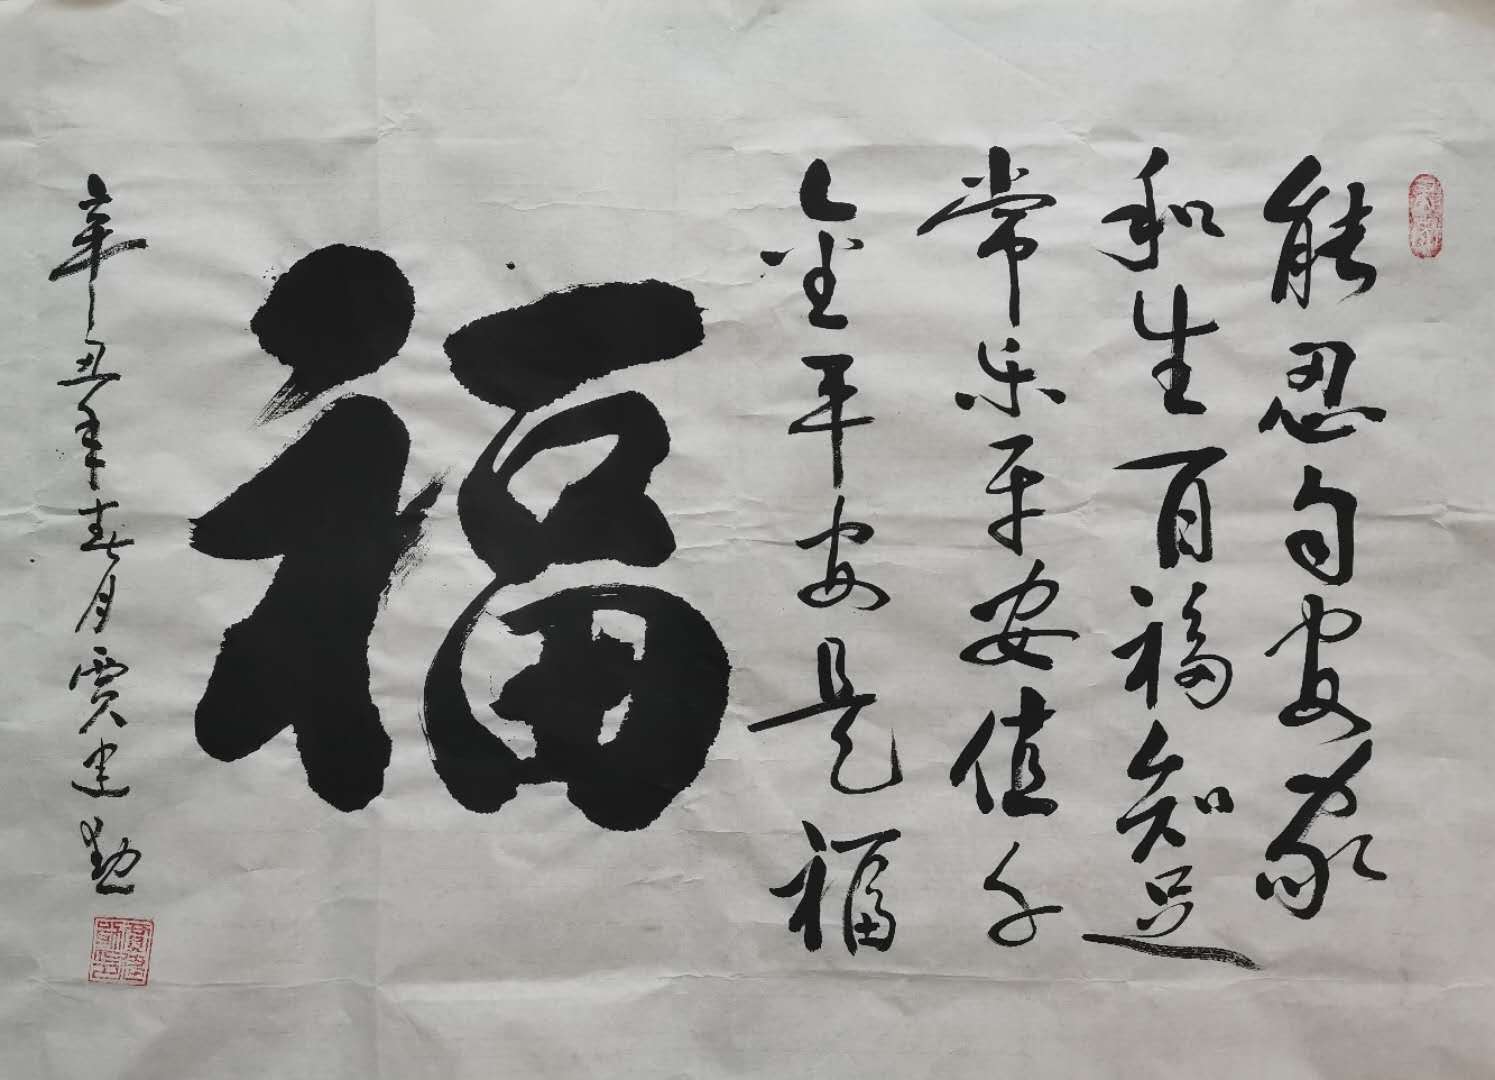 能忍自安家
和生百福知足
常乐平安值千
金平安是福
福
辛丑年春月贾建勤